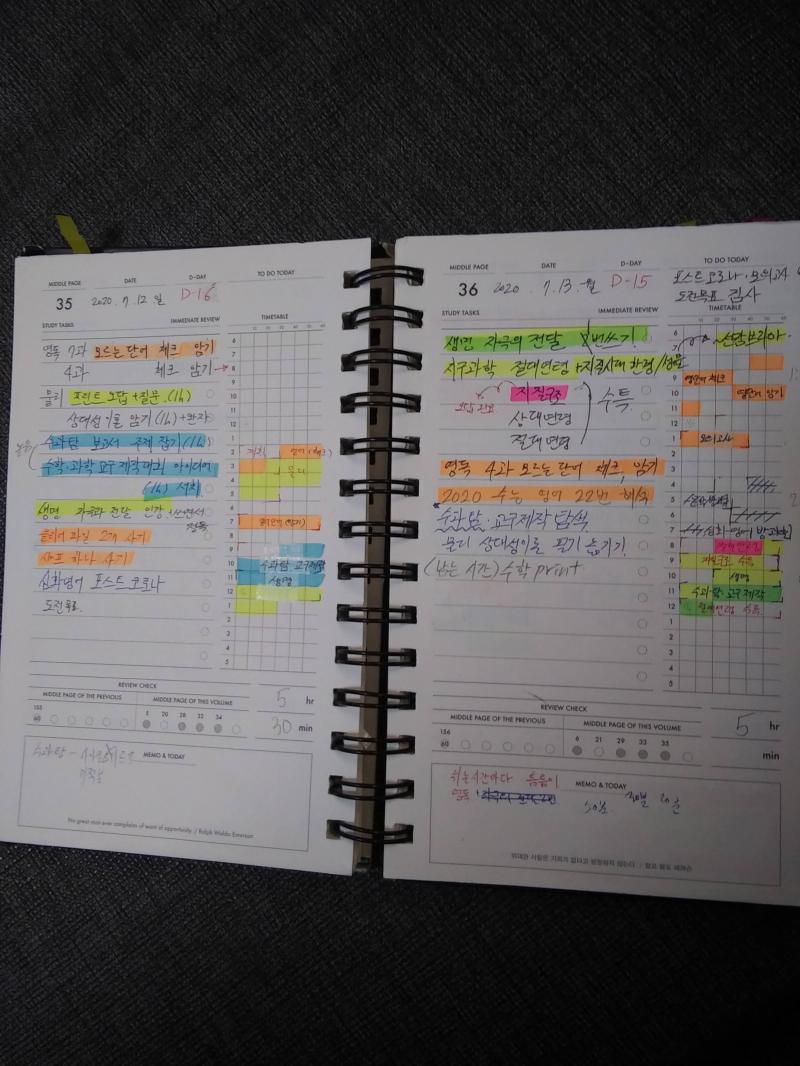 MIDDLE PAGE DATE D-DAY TO DO TODAY
35 2020. 7. 12 일 D-16
STUDY TASKS IMMEDIATE REVIEW TIMETABLE
10 20 30 40 50 60
영독 7과 모르는 단어 체크 암기
4과 체크 암기
물리 프린트 오답+질문 (1h)
상대성이론 암기(1h)+완자
수과탐 보고서 주제 잡기(1h)
수학·과학 교구 제작대회 아이디어
(1h) 서치
생명 자극과 전달 인강
정독
클리어파일 2개 사기
샤프 하나 사기
심화영어 포스트코로나
도전목표
6
7
8
9
10
11
12
1
2
3 물리
4
5
6
7
8
9
10 수과탐 교구제작
11 생명
12
1
2
3
4
5
REVIEW CHECK
MIDDLE PAGE OF THE PREVIOUS MIDDLE PAGE OF THIS VOLUME
155
60 5 20 28 32 34
5 hr
30 min
MEMO & TODAY
수과탐 -
No great man ever complains of want of opportunity. / Ralph Waldo Emerson
MIDDLE PAGE DATE D-DAY TO DO TODAY
36 2020 . 7 .13. 월 D-15
포스트코로나·모의고사
도전목표 검사
STUDY TASKS IMMEDIATE REVIEW TIMETABLE
10 20 30 40 50 60
생명 자극의 전달 번쓰기
지구과학 절대연령 +지질시대 환경/생물
지질구조
상대연령 수특
절대연령
영독 4과 모르는 단어 체크, 암기
2020 수능 영어 22번 해석
수과탐·교구제작 탐색
물리 상대성이론 필기 옮기기
(남는 시간) 수학 print
6
7
8
9 영단어 체크
10 영단어 암기
11
12
1 모의고사
2
3
4
5
6
7 심화영어 방과후
8
9 지질구조 수특
10 생명
11 수과탐 교구제작
12 절대연령 수특
1
2
3
4
5
REVIEW CHECK
MIDDLE PAGE OF THE PREVIOUS MIDDLE PAGE OF THIS VOLUME
156
60 6 21 29 33 35
5 hr
min
MEMO & TODAY
쉬는시간마다 틈틈이
영독 50분 30분 20분
위대한 사람은 기회가 없다고 원망하지 않는다. / 랄프 왈도 에머슨